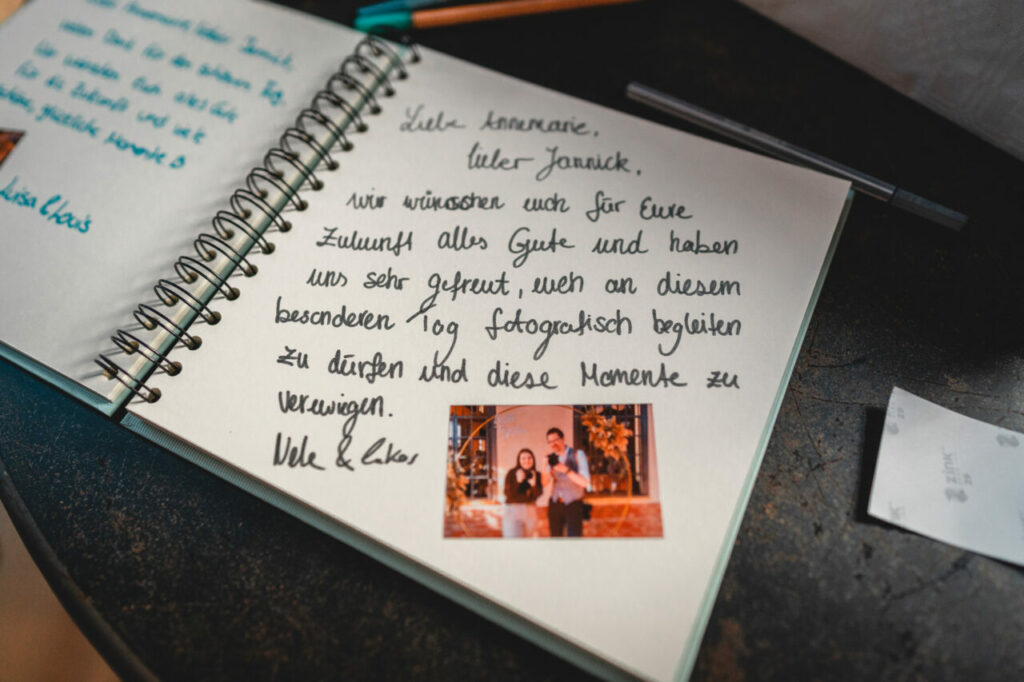 Liebe Annemarie, lieber Jannick,
vielen Dank für den schönen Tag.
Wir wünschen Euch alles Gute
für die Zukunft und viele
schöne, glückliche Momente
Luisa & Louis
Liebe Annemarie,
lieber Jannick,
wir wünschen euch für Eure
Zukunft alles Gute und haben
uns sehr gefreut, euch an diesem
besonderen Tag fotografisch begleiten
zu dürfen und diese Momente zu
verewiegen.
Nele & Lukas
zink